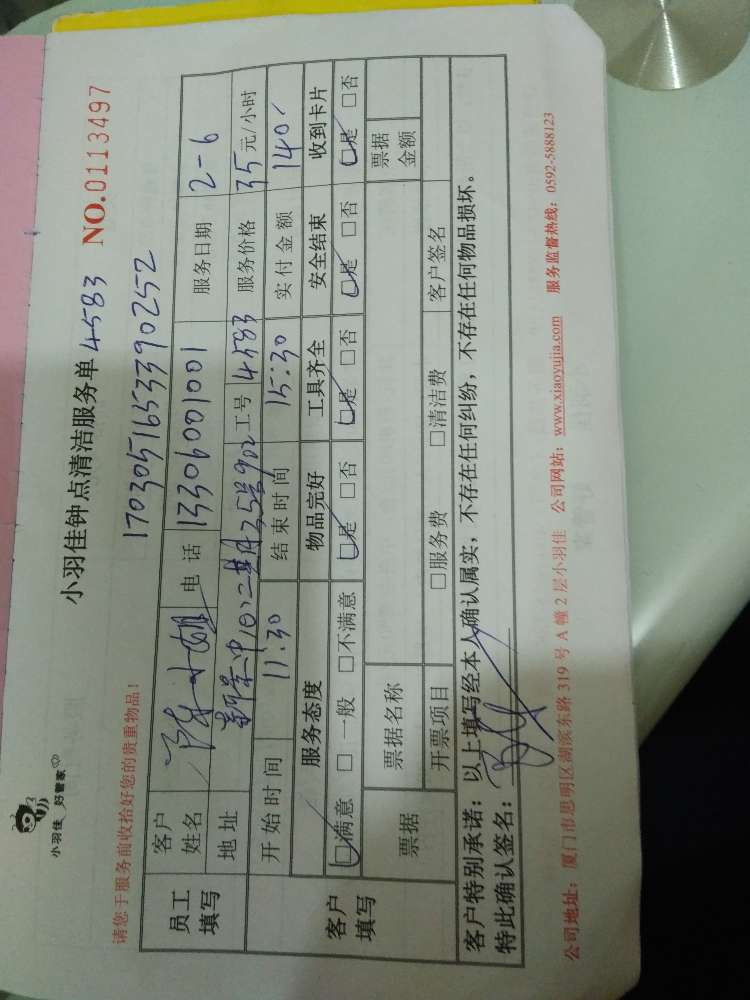 小羽佳 好管家
小羽佳钟点清洁服务单 4583 NO.0113497
请您于服务前收拾好您的贵重物品! 17030516533390252
员工填写 客户姓名 陈小姐 电话 13306001001 服务日期 2-6
地址 二期35号902 工号 4583 服务价格 35元/小时
客户填写 开始时间 11:30 结束时间 15:30 实付金额 140
服务态度 物品完好 工具齐全 安全结束 收到卡片
☑满意 □一般 □不满意 ☑是 □否 ☑是 □否 ☑是 □否 ☑是 □否
票据 票据名称 票据金额
开票项目 □服务费 □清洁费 客户签名
客户特别承诺:以上填写经本人确认属实,不存在任何纠纷,不存在任何物品损坏。
特此确认签名:
公司地址:厦门市思明区湖滨东路319号A幢2层小羽佳 公司网站:www.xiaoyujia.com 服务监督热线:0592-5888123